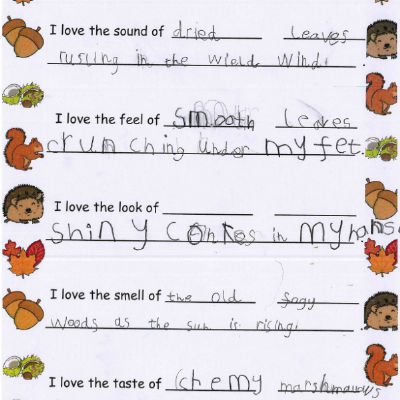 I love the sound of dried leaves
rusling in the wield wind.
I love the feel of smooth leaves
crunching under my feet.
I love the look of
shiny conkes in my hans
I love the smell of the old fogy
woods as the sun is rising.
I love the taste of chemy marshmallows